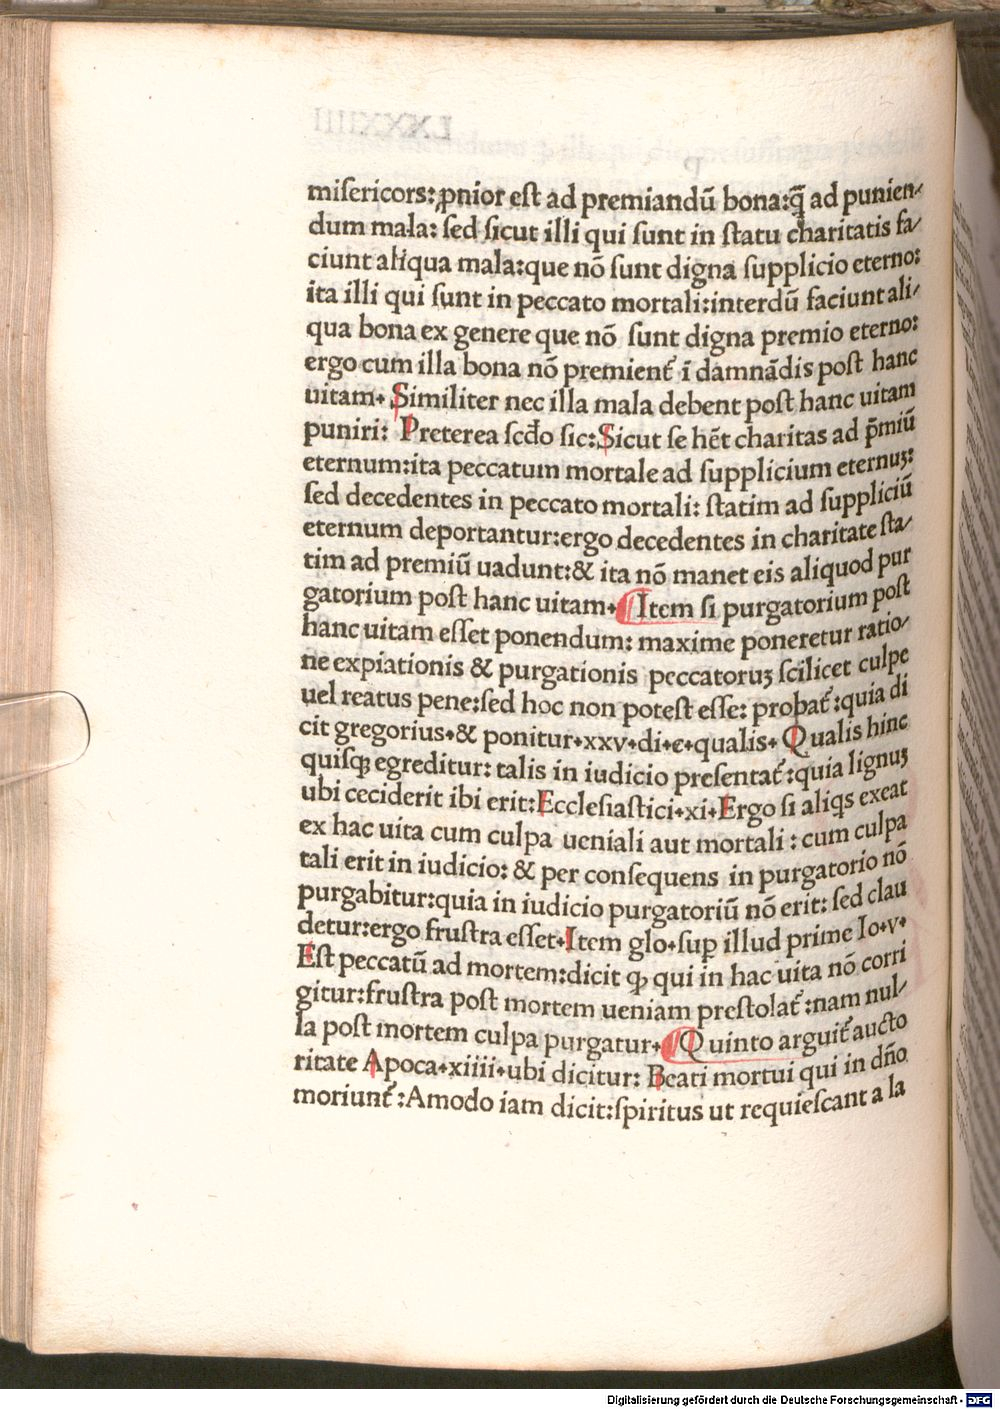 miſericors: ꝓnior eſt ad premiandū bona: q̄ ad punien-
dum mala: ſed ſicut illi qui ſunt in ſtatu charitatis fa-
ciunt aliqua mala: que nō ſunt digna ſupplicio eterno:
ita illi qui ſunt in peccato mortali: interdū faciunt ali-
qua bona ex genere que nō ſunt digna premio eterno:
ergo cum illa bona nō premient᷑ ī damnādis poſt hanc
uitam. Similiter nec illa mala debent poſt hanc uitam
puniri: Preterea ſcd̄o ſic: Sicut ſe hēt charitas ad p̄miū
eternum: ita peccatum mortale ad ſupplicium eternuʒ:
ſed decedentes in peccato mortali: ſtatim ad ſuppliciū
eternum deportantur: ergo decedentes in charitate ſta-
tim ad premiū uadunt: & ita nō manet eis aliquod pur
gatorium poſt hanc uitam. ¶ Item ſi purgatorium poſt
hanc uitam eſſet ponendum: maxime poneretur ratio-
ne expiationis & purgationis peccatoruʒ ſcilicet culpe
uel reatus pene: ſed hoc non poteſt eſſe: probat᷑: quia di
cit gregorius. & ponitur. xxv. di. c. qualis. Qualis hinc
quiſqꝫ egreditur: talis in iudicio preſentat᷑: quia lignuʒ
ubi ceciderit ibi erit: Eccleſiaſtici. xi. Ergo ſi aliqs exeat
ex hac uita cum culpa ueniali aut mortali: cum culpa
tali erit in iudicio: & per conſequens in purgatorio nō
purgabitur: quia in iudicio purgatoriū nō erit: ſed clau
detur: ergo fruſtra eſſet. Item glo. ſuꝑ illud prime Io. v.
Eſt peccatū ad mortem: dicit ꝙ qui in hac uita nō corri
gitur: fruſtra poſt mortem ueniam preſtolat᷑: nam nul-
la poſt mortem culpa purgatur. ¶ Quinto arguit᷑ aucto
ritate Apoca. xiiii. ubi dicitur: Beati mortui qui in dn̄o
moriunt᷑: Amodo iam dicit: ſpiritus ut requieſcant a la
Digitalisierung gefördert durch die Deutsche Forschungsgemeinschaft - DFG